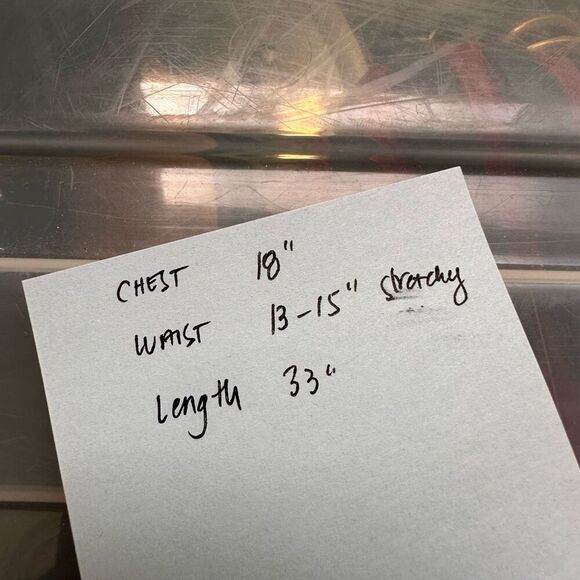 CHEST 18"
WAIST 13-15" stretchy
Length 33"